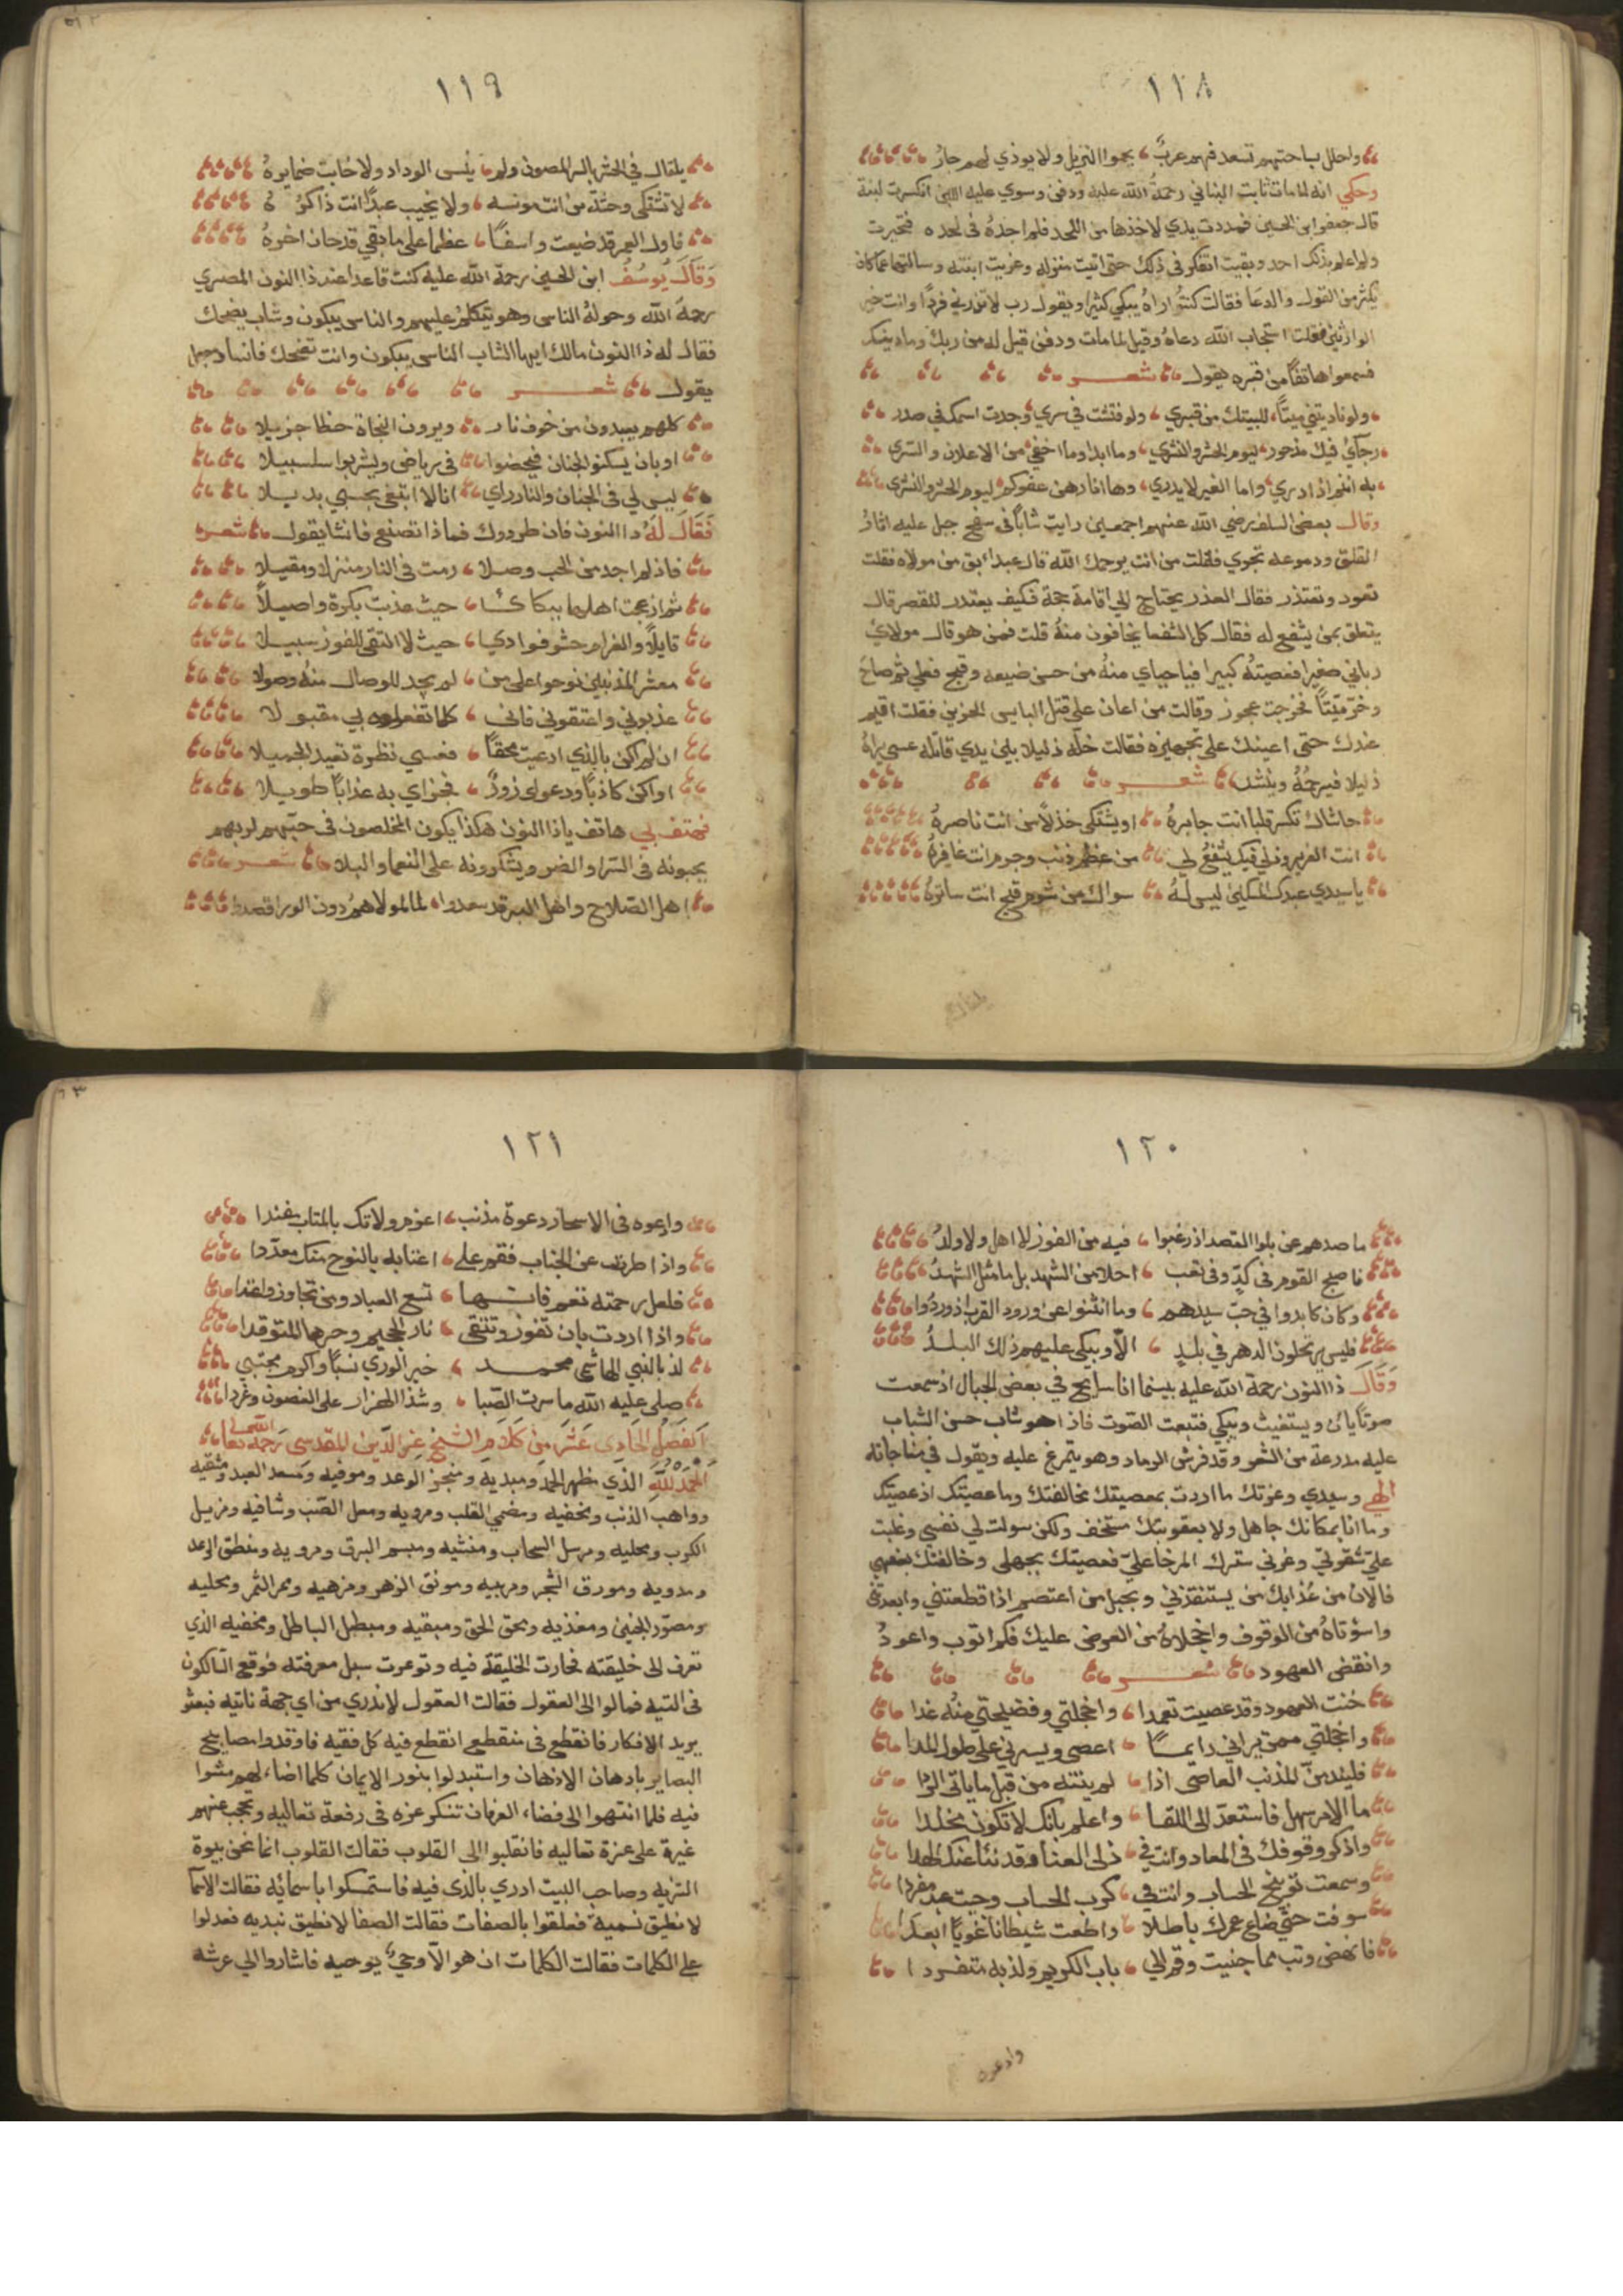 ١١٨
واحلل بساحتهم تسعد فهم عرب يحموا النزيل ولا يوذي لهم جار
وحكي انه لما مات ثابت البناني رحمة الله عليه ودفن وسوي عليه اللبن انكسرت لبنة
قال جعفر ابن الحسين فمددت يدي لاخذها من اللحد فلم اجده في لحده فتحيرت
ولم اعلم بذلك احد وبقيت اتفكر في ذلك حتى اتيت منزله وعزيت ابنته وسالتها عما كان
يكثر من القول والدعا فقالت كنت اراه يبكي كثيرا ويقول رب لا تذرني فردا وانت خير
الوارثين فقلت استجاب الله دعاه وقيل لما مات ودفن قيل له من ربك وما دينك
فسمعوا هاتفا من قبره يقول شعر
ولو ناديتني ميتا للبيتك من قبري ولو فتشت في سري وجدت اسمك في صدر
رجائي فيك مذخور ليوم الحشر والنشري وما ابدا وما اخفي من الاعلان والسري
به انتم اذا ادري واما الغير لا يدري وها انا رهن عفوكم ليوم الحشر والنشرى
وقال بعض السلف رضي الله عنهم اجمعين رايت شابا في سفح جبل عليه اثار
القلق ودموعه تجري فقلت من انت يرحمك الله قال عبد ابق من مولاه فقلت
تعود وتعتذر فقال العذر يحتاج الي اقامة حجة فكيف يعتذر للمقصر قال
يتعلق بمن يشفع له فقال كل الشفعا يخافون منه قلت فمن هو قال مولاي
رباني صغيرا فعصيته كبيرا فيا حياي منه من حسن صنيعه وقبح فعلي ثم صاح
وخر ميتا فخرجت عجوز وقالت من اعان على قتل البايس الحزين فقلت اقيم
عندك حتى اعينك على تجهيزه فقالت خله ذليلا بين يدي قاتله عسى يراه
ذليلا فيرحمه وينشد شعر
حاشاك تكسر قلبا انت جابره او يشتكي خذلا من انت ناصره
انت الغرير وذلي فيك يشفع لي من عظم ذنب وجرم انت غافره
يا سيدي عبدك المسكين ليس له سواك من شوم قبح انت ساتره
يلقاك
١١٩
يلقاك في الحشر بالسر المصون ولم ينسى الوداد ولا خابت ضمايره
لا تشتكي وحشة من انت مونسه ولا يخيب عبدا انت ذاكره
فاول العمر قد ضيعت واسفا عظما على ما بقي قد حان اخره
وقال يوسف ابن الحسين رحمة الله عليه كنت قاعدا عند ذا النون المصري
رحمه الله وحوله الناس وهو يتكلم عليهم والناس يبكون وشاب يضحك
فقال له ذا النون مالك ايها الشاب الناس يبكون وانت تضحك فانشا وجعل
يقول شعر
كلهم يعبدون من خوف نار ويرون النجاة حظا جزيلا
او بان يسكنوا الجنان فيحضوا في رياض ويشربوا سلسبيلا
ليس لي في الجنان والنار راي انا لا ابتغي بحبي بديلا
فقال له ذا النون فان طردوك فماذا تصنع فانشا يقول شعر
فاذ لم اجد من الحب وصلا رمت في النار منزلا ومقيلا
ثم ازعجت اهلها ببكائي حيث عذبت بكرة واصيلا
قايلا والغرام حشو فوادي حيث لا التقى للفوز سبيلا
معشر المذنبين نوحوا على من لم يجد للوصال منه وصولا
عذبوني واعتقوني فاني كلما تفعلوه بي مقبولا
ان لم اكن بالذي ادعيت محقا فعسي نظرة تعيد الجميلا
او اكن كاذبا ودعواي زور فجزاي به عذابا طويلا
فهتف بي هاتف يا ذا النون هكذا يكون المخلصون في حبهم لربهم
يحبونه في السرا والضر ويشكرونه على النعما والبلا شعر
اهل الصلاح واهل البر قد سعدوا لما لمولاهم دون الورا قصدوا
١٢٠
ما صدهم عن بلوا القصد اذ رغبوا فيه من الفوز لا اهل ولا ولد
فاصبح القوم في كد وفي تعب احلا من الشهد بل ما مثل الشهد
وكان كابدوا في حب سيدهم وما انثنوا عن ورود القرب اذ وردوا
فليس يرتحلون الدهر في بلد الا ويبكي عليهم ذلك البلد
وقال ذا النون رحمة الله عليه بينما انا سايح في بعض الجبال اذ سمعت
صوتا يان ويستغيث ويبكي فتبعت الصوت فاذا هو شاب حسن الشباب
عليه مدرعة من الشعر وقد فرش الرماد وهو يتمرغ عليه ويقول في مناجاته
الهي وسيدي وعزتك ما اردت بمعصيتك مخالفتك وما عصيتك اذ عصيتك
وما انا بمكانك جاهل ولا بعقوبتك مستخف ولكن سولت لي نفسي وغلبت
علي شقوتي وغرني سترك المرخا علي فعصيتك بجهلي وخالفتك بفعلي
فالان من عذابك من يستنقذني وبحبل من اعتصم اذا قطعتني وابعدتني
واسؤتاه من الوقوف واخجلاه من العرض عليك فكم اتوب واعود
وانقض العهود شعر
خنت العهود وقد عصيت تعمدا واخجلتي وفضيحتي منه غدا
واخجلتي ممن يراني دايما اعصى ويسترني على طول المدا
فليندبن المذنب العاصى اذا لم ينته من قبل ما ياتي الردا
ما الامر سهل فاستعد الى اللقا واعلم بانك لا تكون مخلدا
واذكر وقوفك في المعاد وانت في ذل العنا وقد نئا عنك الهدا
وسمعت توبيخ الحساب وانت في كرب الحساب وجيت عبد مفردا
سوفت حتى ضاع عمرك باطلا واطعت شيطانا غويا ابعدا
فانهض وتب مما جنيت وقم الي باب الكريم ولذ به متفردا
وادعوه
١٢١
وادعوه في الاسحار دعوة مذنب اعزم ولا تك بالمتاب مفندا
واذا طردت عن الجناب فقم على اعتابه بالنوح منك معددا
فلعل رحمته تعم فانها تسع العباد ومن تجاوز واعتدا
واذا اردت بان تفوز وتتقى نار الجحيم وحرها المتوقدا
لذ بالنبي الهاشمي محمد خير الوري نسبا واكرم مجتبي
صلى عليه الله ما سرت الصبا وشذا الهزار على الغصون وغردا
الفصل الحادي عشر من كلام الشيخ عز الدين المقدسي رحمة الله تعالى
الحمد لله الذي مظهر الحمد ومبديه ومنجز الوعد وموفيه ومسعد العبد ومشقيه
وواهب الذنب ومخفيه ومضمي القلب ومرويه ومعل الصب وشافيه ومزيل
الكرب ومجليه ومرسل السحاب ومنشيه ومبسم البرق ومرويه ومنطق الرعد
ومدويه ومورق الشجر ومربيه ومونق الزهر ومزهيه وممر الثمر ومحليه
ومصور الجنين ومغذيه ومحق الحق ومبقيه ومبطل الباطل ومخفيه الذي
تعرف الى خليقته فحارت الخليقة فيه وتوعرت سبل معرفته فوقع السالكون
في التيه فمالوا الى العقول فقالت العقول لا ندري من اي جهة ناتيه فبعثو
بريد الافكار فانقطع في منقطع انقطع فيه كل فقيه فاوقدوا مصابيح
البصاير بادهان الاذهان واستبدلوا بنور الايمان كلما اضاء لهم مشوا
فيه فلما انتهوا الى فضاء العرفان تنكر عزه في رفعة تعاليه وتحجب عنهم
غيرة على عزة تعاليه فانقلبوا الى القلوب فقالت القلوب انما نحن بيوة
التنزيه وصاحب البيت ادري بالذى فيه فاستمسكوا باسمائه فقالت الاسما
لا نطيق نسميه فعلقوا بالصفات فقالت الصفا لا نطيق نبديه فعدلوا
على الكلمات فقالت الكلمات ان هو الا وحي يوحيه فاشاروا الي عرشه